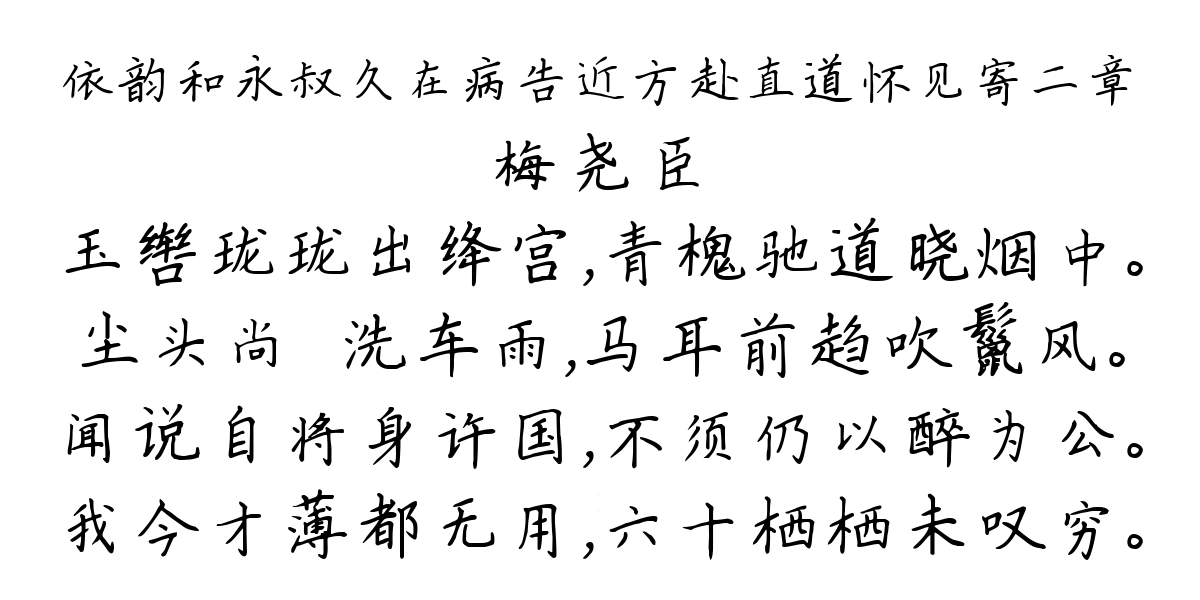 依韵和永叔久在病告近方赴直道怀见寄二章
梅尧臣
玉辔珑珑出绛宫,青槐驰道晓烟中。
尘头尚 洗车雨,马耳前趋吹鬣风。
闻说自将身许国,不须仍以醉为公。
我今才薄都无用,六十栖栖未叹穷。